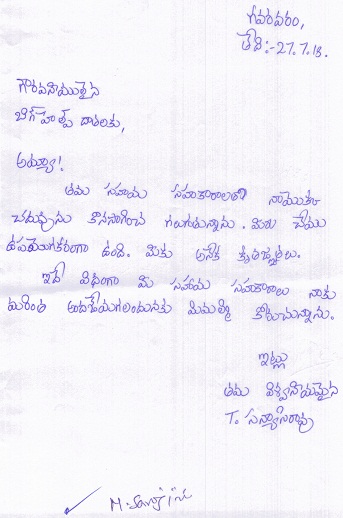 గవరవరం,
తేది:-27.7.18.
గౌరవనీయులైన
బిగ్‌హెల్ప్ దాతలకు,
అయ్యా!
తమ సహాయ సహకారాలతో నాయొక్క
చదువును కొనసాగించ గలుగుతున్నాను. మీరు చేయు
ఉపయోగకరంగా ఉంది. మీకు అనేక కృతజ్ఞతలు.
ఇదే విధంగా మీ సహాయ సహకారాలు నాకు
మరింత అందజేయగలందులకు మిమల్ని కోరుచున్నాను.
ఇట్లు
తమ విశ్వసనీయమైన
T. సన్యాసిరావు
M. Sarojini